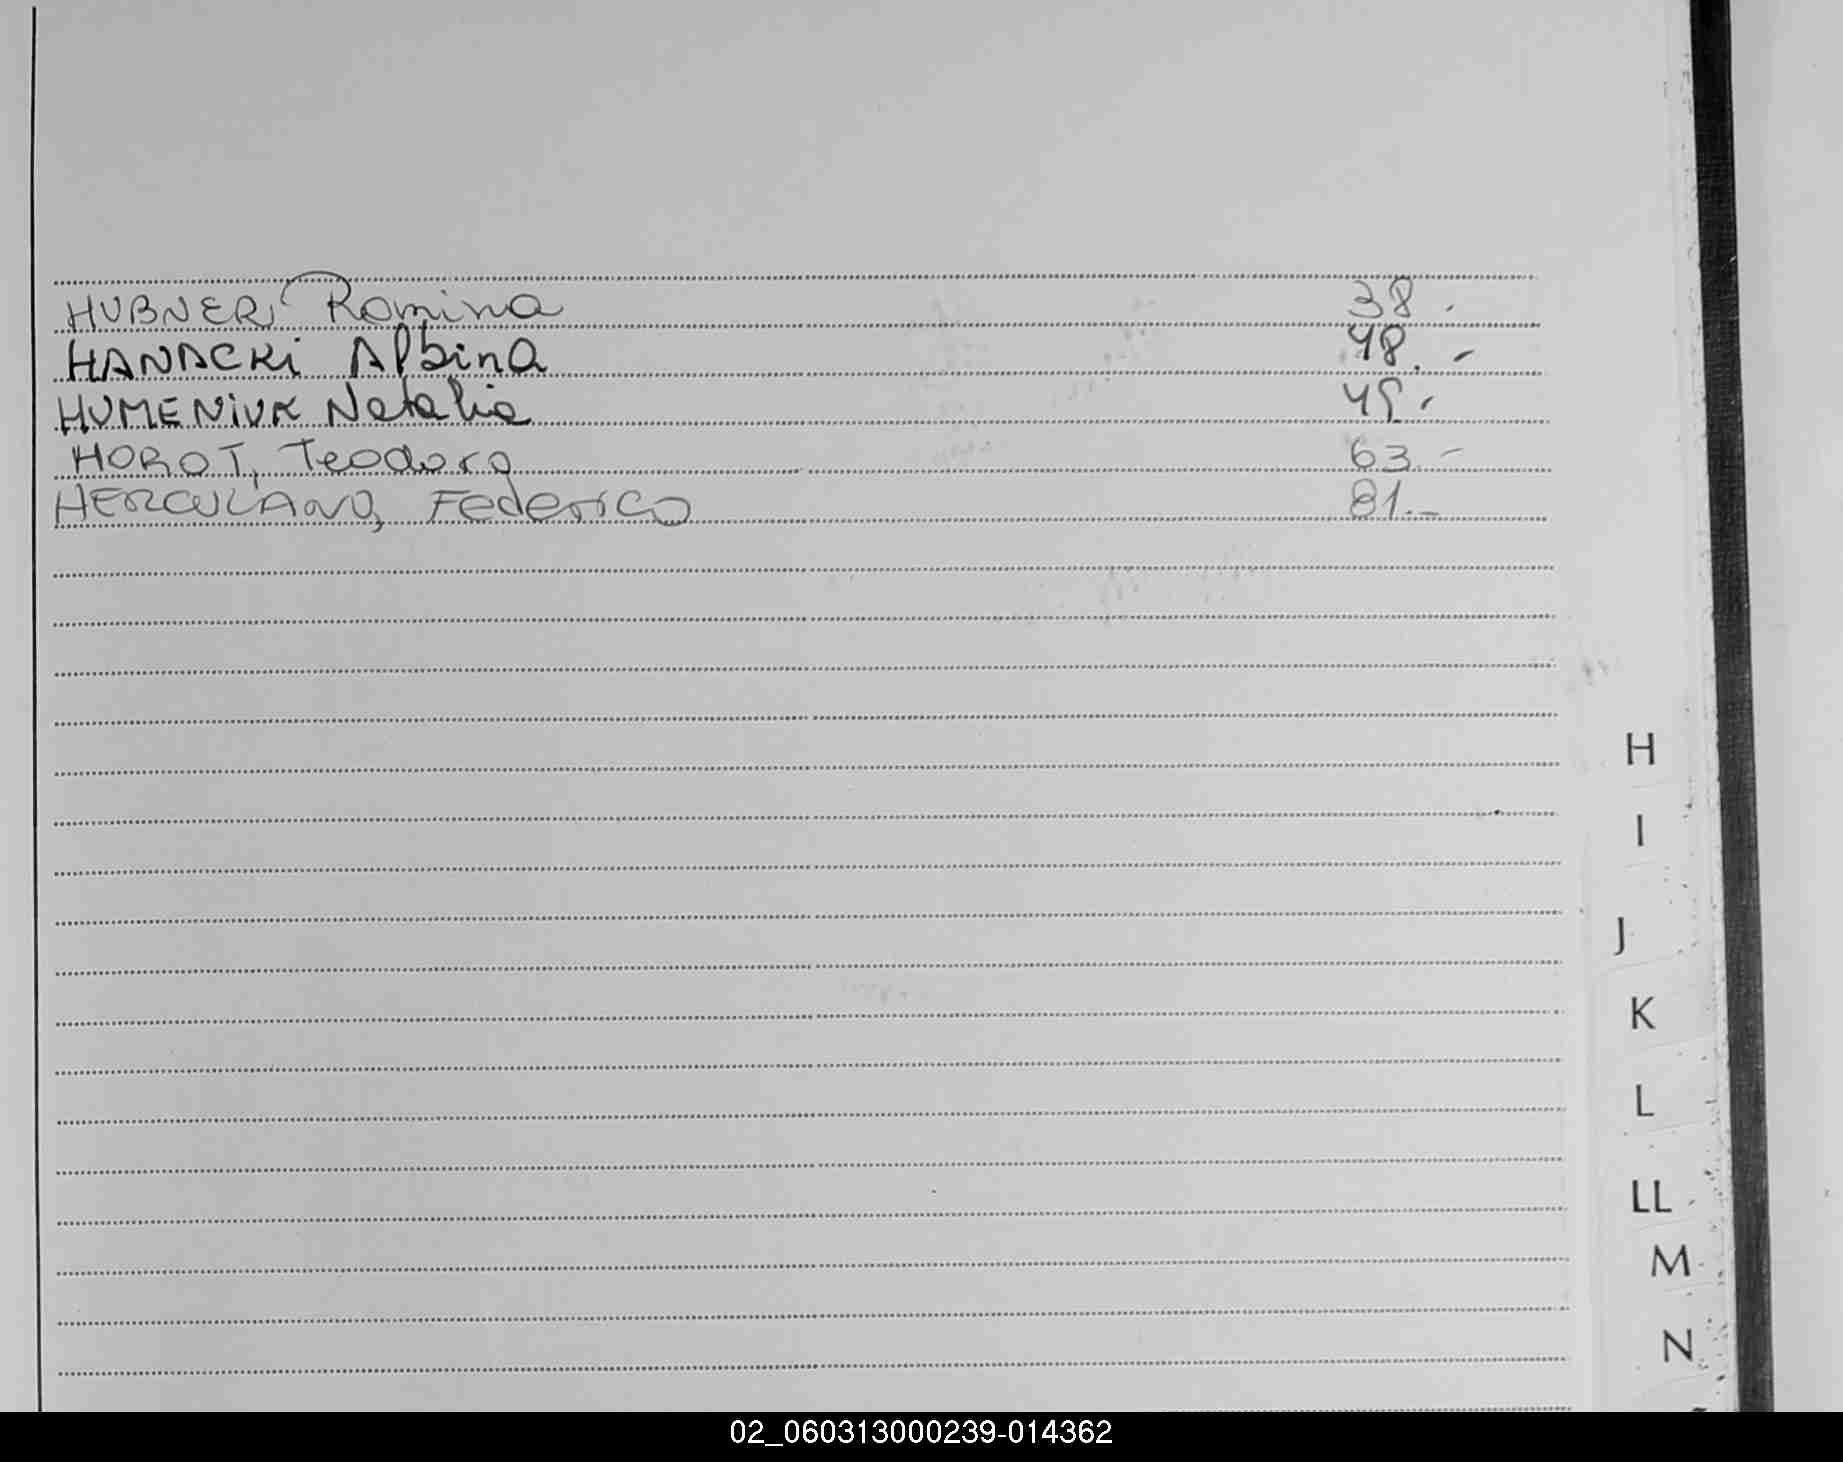 HUBNER, Romina 38.
HANACKi Albina 48.-
HUMENiUK Natalia 49.-
HOROT, Teodoro 63.-
HERCULANO, Federico 81.-
H
I
J
K
L
LL
M
N
02_060313000239-014362